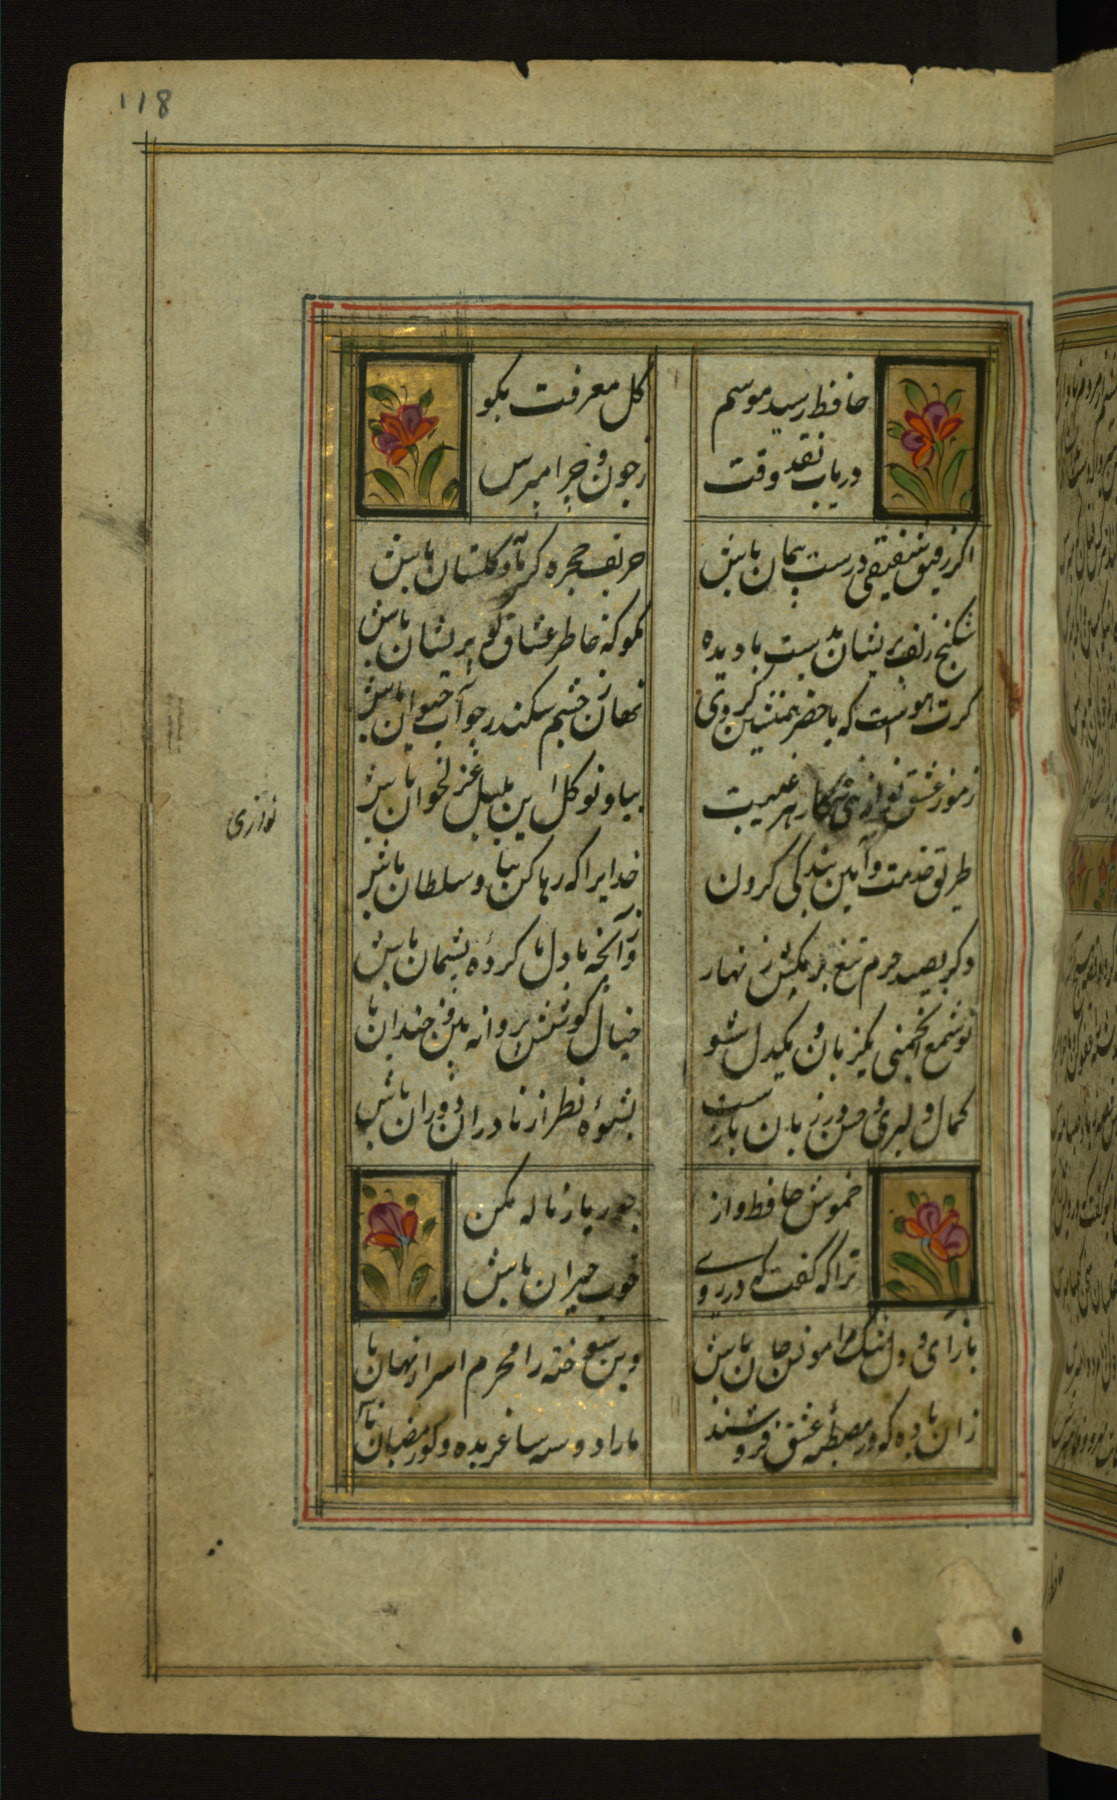 118
حافظ رسید موسم
گل معرفت مگو
دریاب نقد وقت
ز چون و چرا مپرس
اگر رفیق شفیقی درست پیمان باش
حریف حجره و گرمابه و گلستان باش
شکنج زلف پریشان بدست باد مده
مگو که خاطر عشاق گو پریشان باش
گرت هواست که با خضر همنشین گردی
نهان ز چشم سکندر چو آب حیوان باش
رموز عشق نوازی نه کار هر غیبت
بیا و نو گل این بلبل غزلخوان باش
نوازی
طریق خدمت و آیین بندگی کردن
خدایرا که رها کن بما و سلطان باش
دگر بصید حرم تیغ بر مکش زنهار
وز آنچه با دل ما کرده پشیمان باش
تو شمع انجمنی یکزبان و یکدل شو
خیال کوشش پروانه بین و خندان باش
کمال دلبری و حسن در نظر بازیست
بشیوه نظر از نادران دوران باش
خموش حافظ و از
جور یار ناله مکن
ترا که گفت که در روی
خوب حیران باش
بازآی و دل تنگ مرا مونس جان باش
وین سوخته را محرم اسرار نهان باش
زان باده که در مصطبه عشق فروشند
ما را دو سه ساغر بده و گو رمضان باش